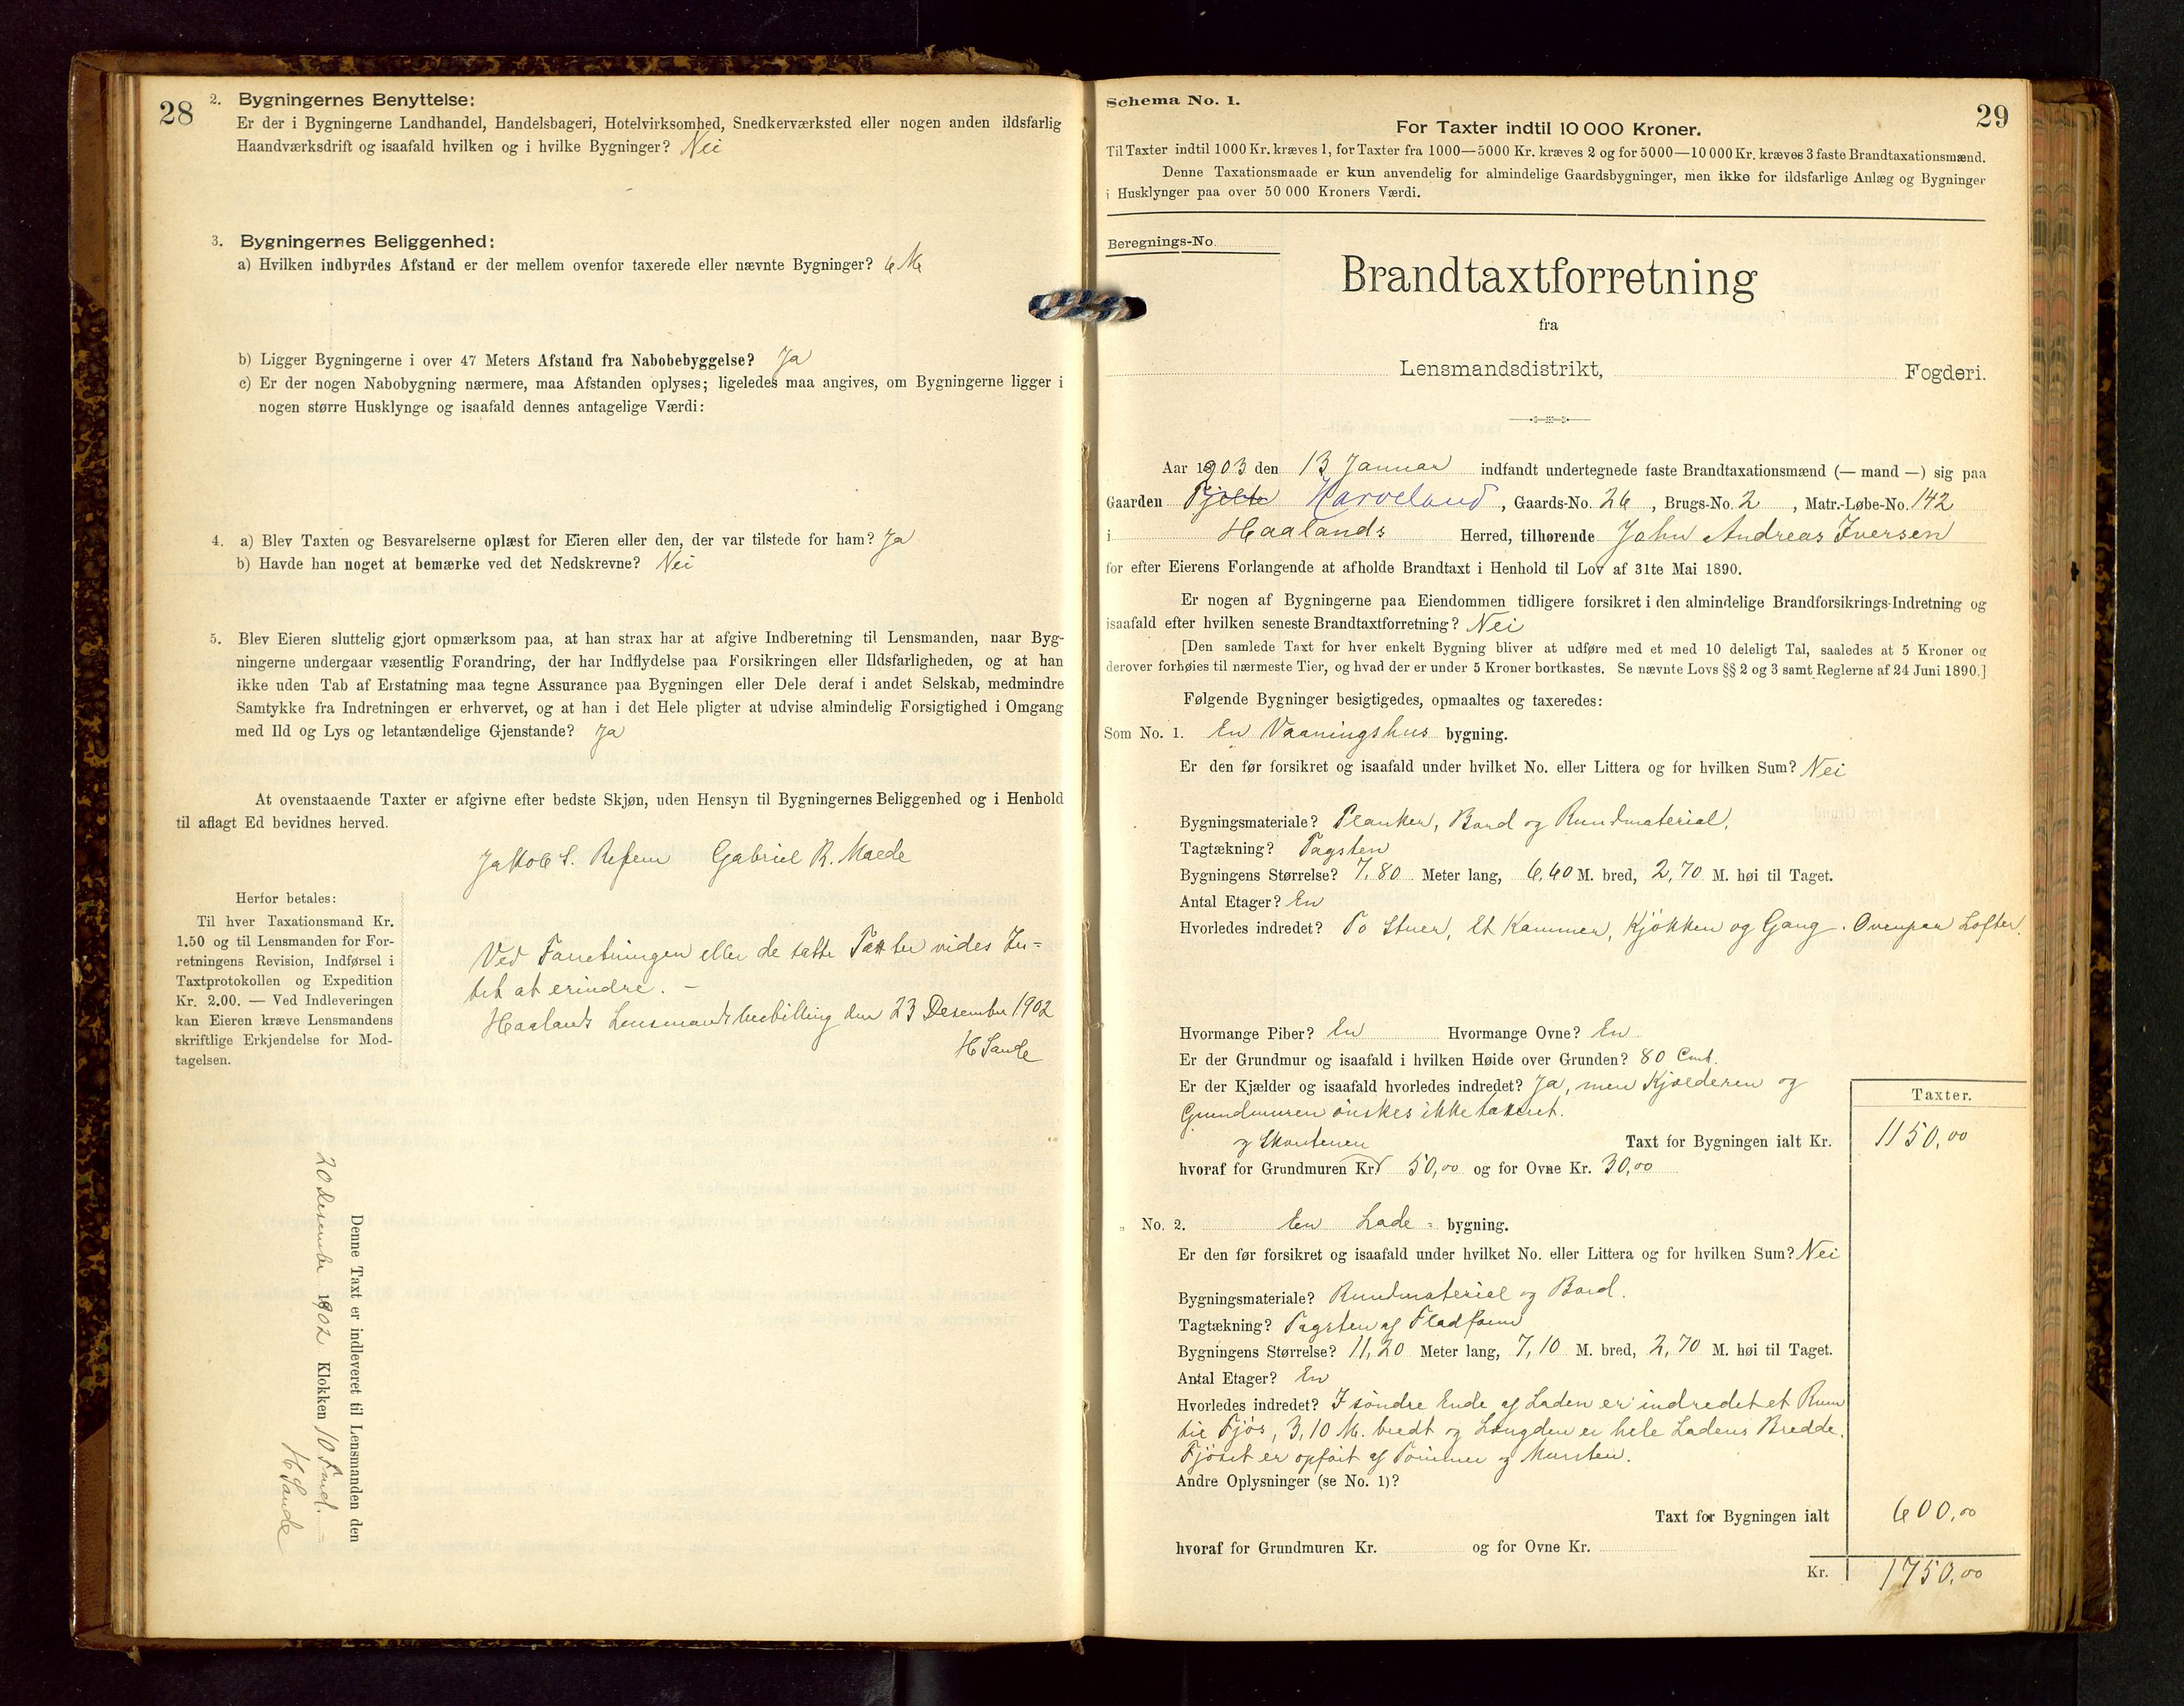 28
2. Bygningernes Benyttelse:
Er der i Bygningerne Landhandel, Handelsbageri, Hotelvirksomhed, Snedkerværksted eller nogen anden ildsfarlig
Haandværksdrift og isaafald hvilken og i hvilke Bygninger? Nei
3. Bygningernes Beliggenhed:
a) Hvilken indbyrdes Afstand er der mellem ovenfor taxerede eller nævnte Bygninger? 6 M
b) Ligger Bygningerne i over 47 Meters Afstand fra Nabobebyggelse? Ja
c) Er der nogen Nabobygning nærmere, maa Afstanden oplyses; ligeledes maa angives, om Bygningerne ligger i
nogen større Husklynge og isaafald dennes antagelige Værdi:
4. a) Blev Taxten og Besvarelserne oplæst for Eieren eller den, der var tilstede for ham? Ja
b) Havde han noget at bemærke ved det Nedskrevne? Nei
5. Blev Eieren sluttelig gjort opmærksom paa, at han strax har at afgive Indberetning til Lensmanden, naar Byg-
ningerne undergaar væsentlig Forandring, der har Indflydelse paa Forsikringen eller Ildsfarligheden, og at han
ikke uden Tab af Erstatning maa tegne Assurance paa Bygningen eller Dele deraf i andet Selskab, medmindre
Samtykke fra Indretningen er erhvervet, og at han i det Hele pligter at udvise almindelig Forsigtighed i Omgang
med Ild og Lys og letantændelige Gjenstande? Ja
At ovenstaaende Taxter er afgivne efter bedste Skjøn, uden Hensyn til Bygningernes Beliggenhed og i Henhold
til aflagt Ed bevidnes herved.
Jakob S. Gabriel R. Malde
Herfor betales:
Til hver Taxationsmand Kr.
1.50 og til Lensmanden for For-
retningens Revision, Indførsel i
Taxtprotokollen og Expedition
Kr. 2.00. — Ved Indleveringen
kan Eieren kræve Lensmandens
skriftlige Erkjendelse for Mod-
tagelsen.
Ved Forretningen eller de satte Taxter vides In-
tet at erindre. —
Haalands Lensmandsbestilling den 23 Desember 1902
H Sande
Denne Taxt er indleveret til Lensmanden den
20 desember 1902 Klokken 10 Form.
H Sande
Schema No. 1.
29
For Taxter indtil 10 000 Kroner.
Til Taxter indtil 1000 Kr. kræves 1, for Taxter fra 1000—5000 Kr. kræves 2 og for 5000—10 000 Kr. kræves 3 faste Brandtaxationsmænd.
Denne Taxationsmaade er kun anvendelig for almindelige Gaardsbygninger, men ikke for ildsfarlige Anlæg og Bygninger
i Husklynger paa over 50 000 Kroners Værdi.
Beregnings-No.
Brandtaxtforretning
fra
Lensmandsdistrikt, Fogderi.
Aar 1903 den 13 Januar indfandt undertegnede faste Brandtaxationsmænd (— mand —) sig paa
Gaarden Tjelte Harveland, Gaards-No. 26, Brugs-No. 2, Matr.-Løbe-No. 142
i Haalands Herred, tilhørende John Andreas Iversen
for efter Eierens Forlangende at afholde Brandtaxt i Henhold til Lov af 31te Mai 1890.
Er nogen af Bygningerne paa Eiendommen tidligere forsikret i den almindelige Brandforsikrings-Indretning og
isaafald efter hvilken seneste Brandtaxtforretning? Nei
[Den samlede Taxt for hver enkelt Bygning bliver at udføre med et med 10 deleligt Tal, saaledes at 5 Kroner og
derover forhøies til nærmeste Tier, og hvad der er under 5 Kroner bortkastes. Se nævnte Lovs §§ 2 og 3 samt Reglerne af 24 Juni 1890.]
Følgende Bygninger besigtigedes, opmaaltes og taxeredes:
Som No. 1. En Vaaningshus bygning.
Er den før forsikret og isaafald under hvilket No. eller Littera og for hvilken Sum? Nei
Bygningsmateriale? Planker, Bord og Rundmaterial.
Tagtækning? Tagsten
Bygningens Størrelse? 7,80 Meter lang, 6,60 M. bred, 2,70 M. høi til Taget.
Antal Etager? En
Hvorledes indredet? To Stuer, Et Kammer, Kjøkken og Gang. Ovenpaa Lofter.
Hvormange Piber? En Hvormange Ovne? En
Er der Grundmur og isaafald i hvilken Høide over Grunden? 80 Cmt.
Er der Kjælder og isaafald hvorledes indredet? Ja, men Kjælderen og
Grundmuren ønskes ikke taxeret.
Taxter.
og Skorstenen
Taxt for Bygningen ialt Kr. 1150,00
hvoraf for Grundmuren Kr. 50,00 og for Ovne Kr. 30,00
„ No. 2. En Lade- bygning.
Er den før forsikret og isaafald under hvilket No. eller Littera og for hvilken Sum? Nei
Bygningsmateriale? Rundmateriel og Bord.
Tagtækning? Tagsten af Fladform
Bygningens Størrelse? 11,20 Meter lang, 7,10 M. bred, 2,70 M. høi til Taget.
Antal Etager? En
Hvorledes indredet? I søndre Ende af Laden er indredet et Rum
til Fjøs, 3,10 M. bredt og Længden er hele Ladens Bredde.
Fjøset er opført af Tømmer og Mursten.
Andre Oplysninger (se No. 1)?
Taxt for Bygningen ialt 600,00
hvoraf for Grundmuren Kr. og for Ovne Kr.
Kr. 1750,00